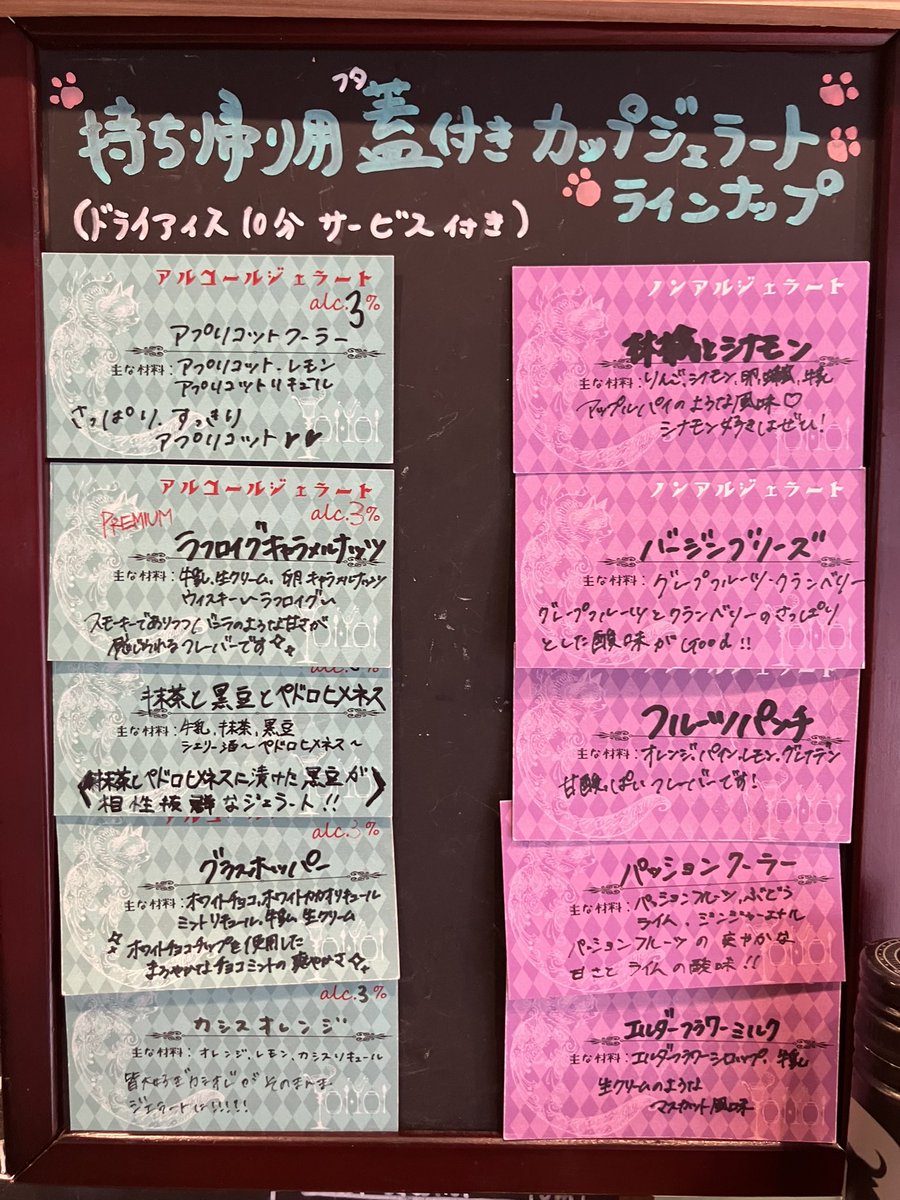 フタ
持ち帰り用 蓋付き カップジェラート
ラインナップ
(ドライアイス 10分 サービス付き)
アルコールジェラート
alc.3%
アプリコットクーラー
主な材料:アプリコット・レモン
アプリコットリキュール
さっぱり、すっきり
アプリコット♥♥
アルコールジェラート
PREMIUM
alc.3%
ラフロイグキャラメルナッツ
主な材料:牛乳、生クリーム、卵、キャラメルナッツ
ウィスキー〜ラフロイグ〜
スモーキーでありつつ、バニラのような甘さが
感じられるフレーバーです☆
抹茶と黒豆とペドロヒメネス
主な材料:牛乳、抹茶、黒豆
シェリー酒〜ペドロヒメネス〜
抹茶とペドロヒメネスに漬けた黒豆が
相性抜群なジェラート!!
アルコールジェラート
alc.3%
グラスホッパー
主な材料:ホワイトチョコ、ホワイトカカオリキュール
ミントリキュール、牛乳、生クリーム
☆ホワイトチョコチップを使用した
まろやかなチョコミントの爽やかさ☆
alc.3%
カシスオレンジ
主な材料:オレンジ、レモン、カシスリキュール
皆大好きカシオレがそのまんま
ジェラートに!!!!!
ノンアルジェラート
林檎とシナモン
主な材料:りんご、シナモン、卵、牛乳
アップルパイのような風味♡
シナモン好きはぜひ!
ノンアルジェラート
バージンブリーズ
主な材料:グレープフルーツ・クランベリー
グレープフルーツとクランベリーのさっぱり
とした酸味がGood!!
フルーツパンチ
主な材料:オレンジ、パイン、レモン、グレナデン
甘酸っぱいフレーバーです!
パッションクーラー
主な材料:パッションフルーツ、ぶどう
ライム、ジンジャーエール
パッションフルーツの爽やかな
甘さとライムの酸味!!
エルダーフラワーミルク
主な材料:エルダーフラワーシロップ、牛乳
生クリームのような
マスカット風味